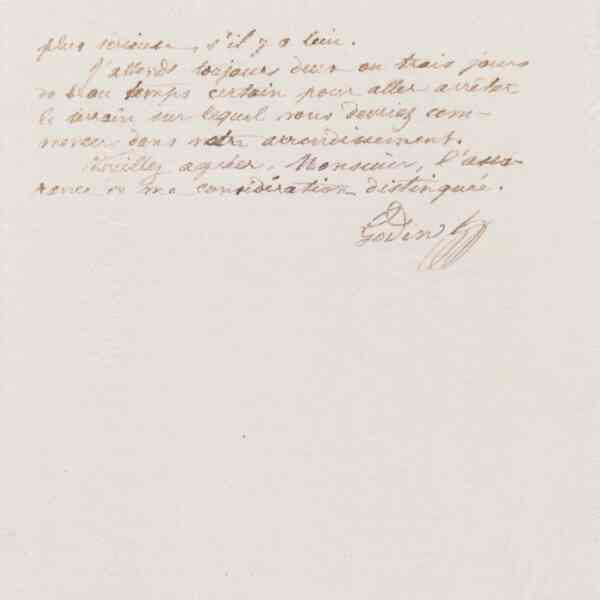 plus sérieuse, s'il y a lieu.
J'attends toujours deux ou trois jours
de beau temps certain pour aller arrêter
le terrain sur lequel vous devriez com-
mencer dans notre arrondissement.
Veuillez agréer, Monsieur, l'assu-
rance de ma considération distinguée.
Godin